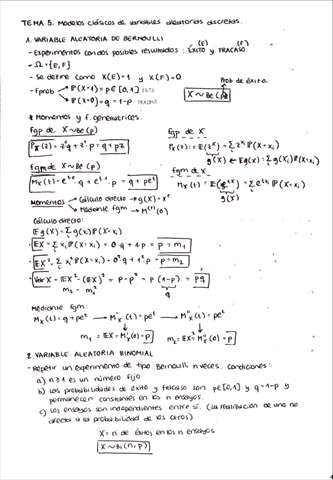 TEMA 5. Modelos clásicos de variables aleatorias discretas.
1. VARIABLE ALEATORIA DE BERNOULLI
- Experimentos con dos posibles resultados: ÉXITO (E) y FRACASO (F).
- Ω = {E, F}
- Se define como X(E)=1 y X(F)=0
Prob de éxito
- Fprob → P(X=1) = p ∈ [0,1] ÉXITO
P(X=0) = q = 1-p FRACASO
X ~ Be(p)
* Momentos y f. generatrices.
fgp de X ~ Be(p)
P_X(z) = z⁰q + z¹·p = q + pz
fgp de X
P_X(t) := E(z^X) = Σ z^{x_i} P(X=x_i)
g(X) ← Eg(X) = Σ g(x_i) P(X=x_i)
fgm de X ~ Be(p)
M_X(t) = e^{t·0}·q + e^{t·1}·p = q + pe^t
fgm de X
M_X(t) = E(e^{tX}) = Σ e^{t x_i} P(X=x_i)
g(X)
Momentos → Cálculo directo → g(X) = x^r
→ Mediante fgm → M^{(r)}(0)
Cálculo directo:
Eg(X) = Σ g(x_i) P(X=x_i)
· EX = Σ x_i P(X=x_i) = 0·q + 1·p = p = m₁
· EX² = Σ x_i² P(X=x_i) = 0²·q + 1²·p = p = m₂
· Var X = EX² - (EX)² = p - p² = p(1-p) = pq
m₂ - m₁²
q
Mediante fgm:
M_X(t) = q + pe^t → M'_X(t) = pe^t → M''_X(t) = pe^t
m₁ = EX = M'_X(0) = p
m₂ = EX² = M''_X(0) = p
2. VARIABLE ALEATORIA BINOMIAL
- Repetir un experimento de tipo Bernoulli n veces. Condiciones:
a) n≥1 es un número fijo
b) Las probabilidades de éxito y fracaso son p∈[0,1] y q=1-p y
permanecen constantes en los n ensayos.
c) Los ensayos son independientes entre sí. (La realización de uno no
afecta a la probabilidad de los otros)
X = nº de éxitos en los n ensayos
X ~ Bi(n,p)
1